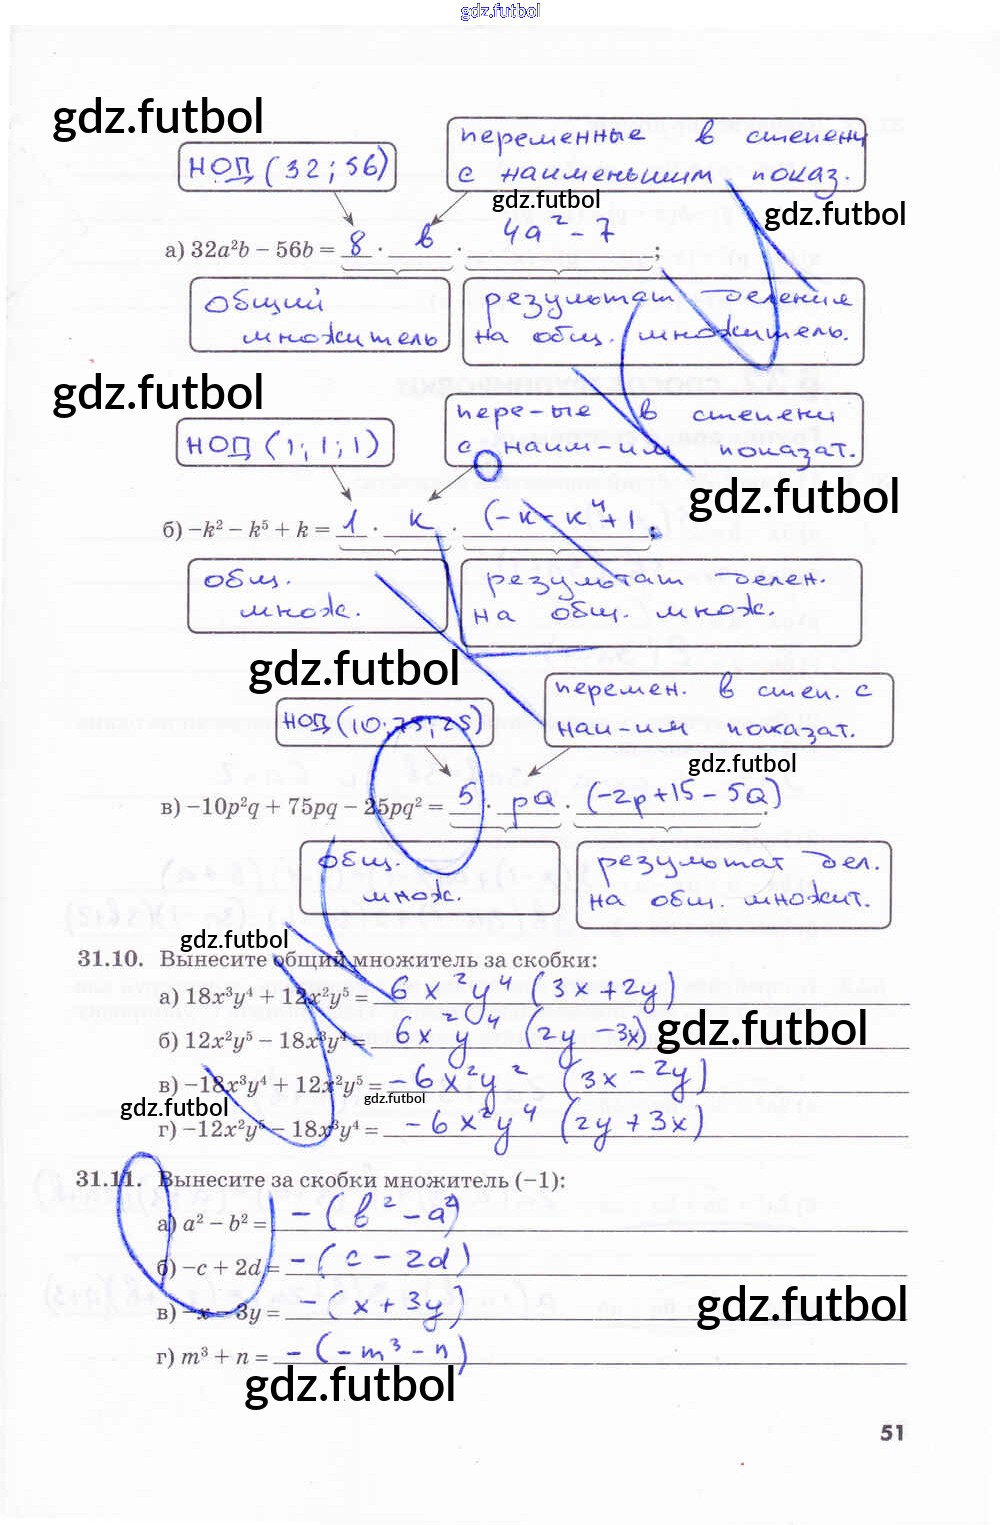 gdz.futbol
gdz.futbol
переменные в степени
НОД (32; 56)
с наименьшим показ.
gdz.futbol
gdz.futbol
а) 32a²b − 56b = 8 · b · 4a² − 7 ;
общий множитель
результат деления
на общ. множитель.
gdz.futbol
пере-ые в степени
НОД (1; 1; 1)
с наим-им показат.
gdz.futbol
б) −k² − k⁵ + k = 1 · k · (−k − k⁴ + 1
общ. множ.
результат делен.
на общ. множ.
gdz.futbol
перемен. в степ. с
НОД (10; 75; 25)
наи-им показат.
gdz.futbol
в) −10p²q + 75pq − 25pq² = 5 · pq · (−2p + 15 − 5q) .
общ. множ.
результат дел.
на общ. множит.
gdz.futbol
31.10. Вынесите общий множитель за скобки:
а) 18x³y⁴ + 12x²y⁵ = 6x²y⁴ (3x + 2y)
б) 12x²y⁵ − 18x³y⁴ = 6x²y⁴ (2y − 3x)
gdz.futbol
в) −18x³y⁴ + 12x²y⁵ = −6x²y² (3x − 2y)
gdz.futbol
gdz.futbol
г) −12x²y⁵ − 18x³y⁴ = −6x²y⁴ (2y + 3x)
31.11. Вынесите за скобки множитель (−1):
а) a² − b² = −(b² − a²)
б) −c + 2d = −(c − 2d)
в) −x − 3y = −(x + 3y)
gdz.futbol
г) m³ + n = −(−m³ − n)
gdz.futbol
51